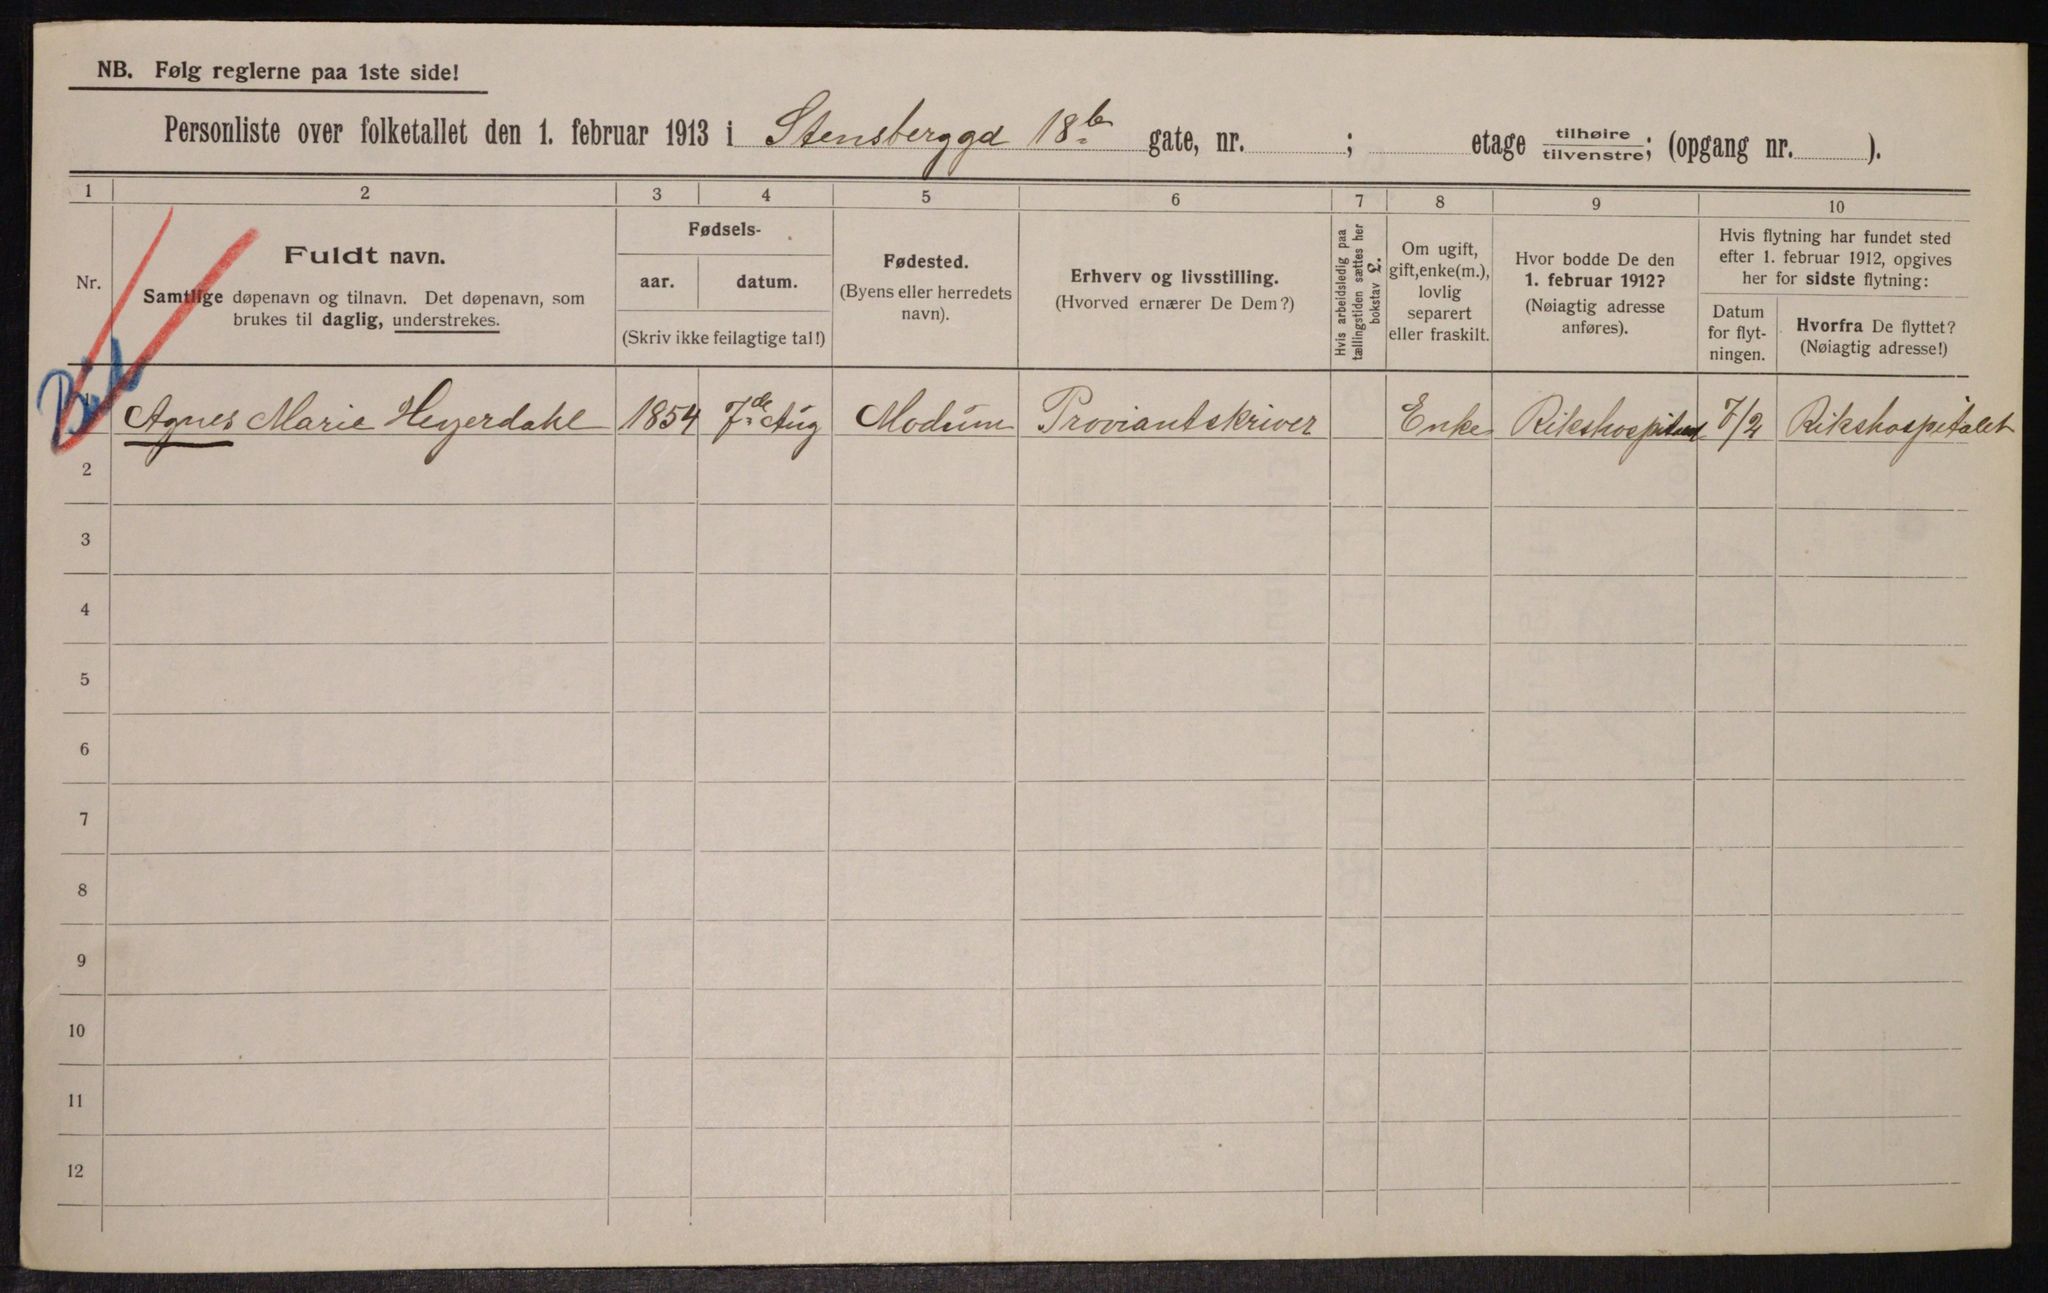 NB. Følg reglerne paa 1ste side!
Personliste over folketallet den 1. februar 1913 i Stensberggd 18b gate, nr. ; etage tilhøire/tilvenstre; (opgang nr. ).
1 2 3 4 5 6 7 8 9 10
Nr.
Fuldt navn.
Samtlige døpenavn og tilnavn. Det døpenavn, som
brukes til daglig, understrekes.
Fødsels-
aar. datum.
(Skriv ikke feilagtige tal!)
Fødested.
(Byens eller herredets
navn).
Erhverv og livsstilling.
(Hvorved ernærer De Dem?)
Hvis arbeidsledig paa
tællingstiden sættes her
bokstav L.
Om ugift,
gift, enke(m.),
lovlig
separert
eller fraskilt.
Hvor bodde De den
1. februar 1912?
(Nøiagtig adresse
anføres).
Hvis flytning har fundet sted
efter 1. februar 1912, opgives
her for sidste flytning:
Datum
for flyt-
ningen.
Hvorfra De flyttet?
(Nøiagtig adresse!)
Agnes Marie Heyerdahl 1854 7de Aug Modum Proviantskriver Enke Rikshospitalet 7/2 Rikshospitalet
2
3
4
5
6
7
8
9
10
11
12